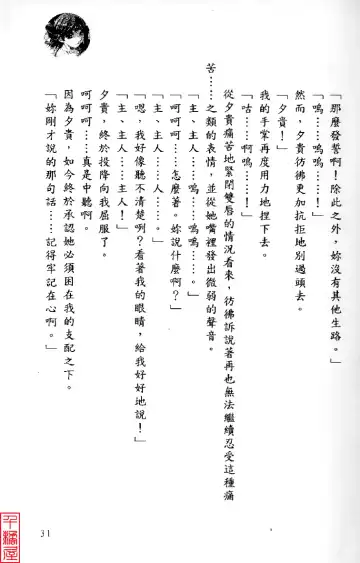 「那麼發誓啊！除此之外，妳沒有其他生路。」
「嗚……嗚嗚！」
然而，夕貴彷彿更加抗拒地別過頭去。
「夕貴！」
我的手掌再度用力地捏下去。
「咕……啊嗚！」
從夕貴痛苦地緊閉雙唇的情況看來，彷彿訴說著再也無法繼續忍受這種痛
苦……之類的表情，並從她嘴裡發出微弱的聲音。
「主、主人……嗚……嗚嗚。」
「呵呵呵……怎麼著。妳說什麼啊？」
「主、主人……主人……。」
「嗯，我好像聽不清楚咧？看著我的眼睛，給我好好地說！」
「主、主人……主人！」
夕貴，終於投降向我屈服了。
呵呵呵……真是中聽啊。
因為夕貴，如今終於承認她必須困在我的支配之下。
「妳剛才說的那句話……記得牢記在心啊。」
31
千橘屋